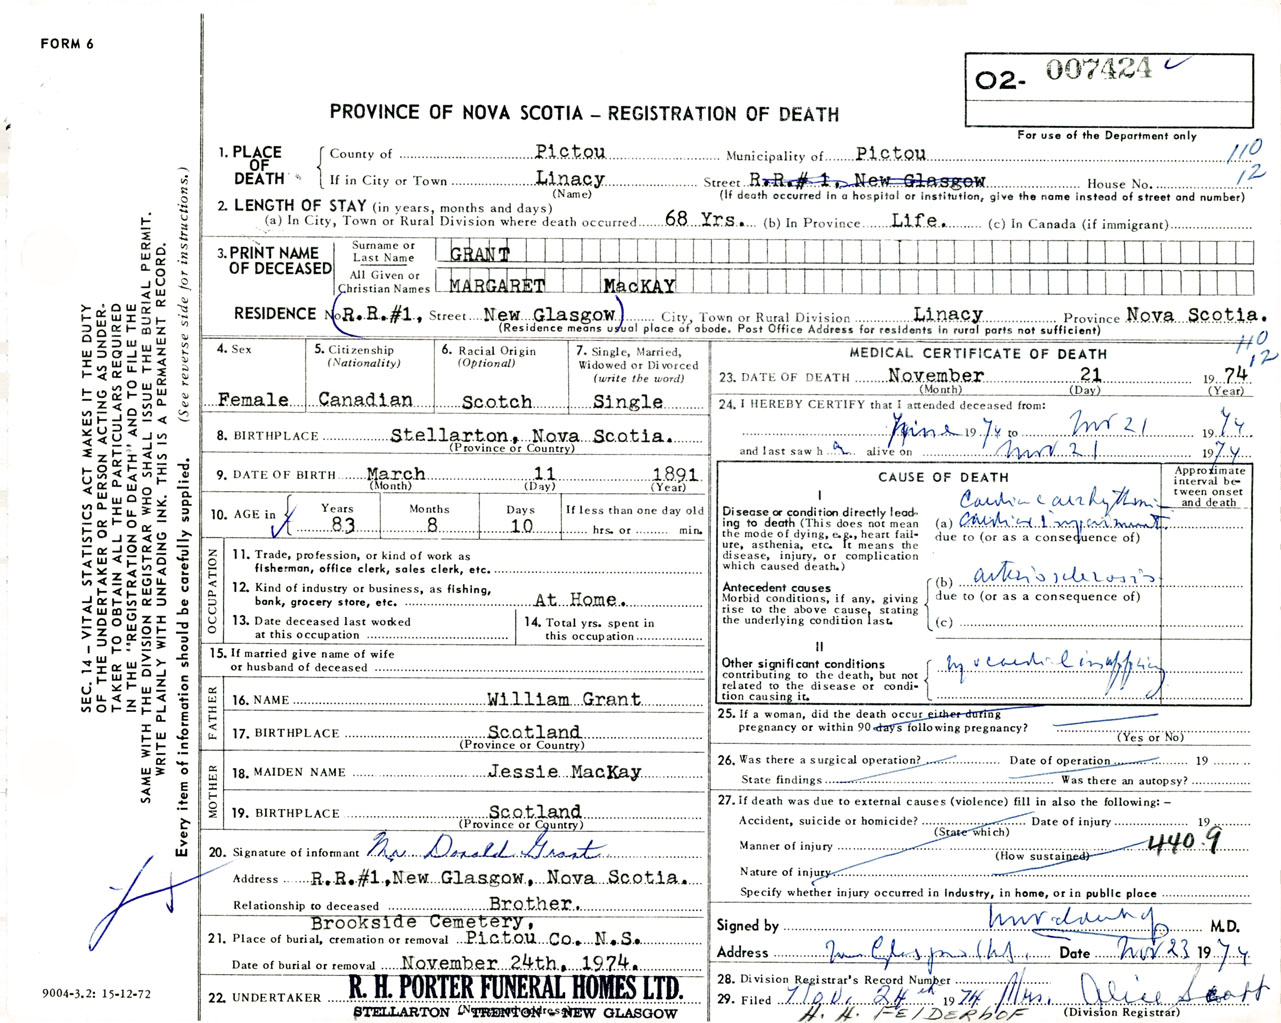 FORM 6
O2- 007424
PROVINCE OF NOVA SCOTIA – REGISTRATION OF DEATH
For use of the Department only
1. PLACE OF DEATH
County of Pictou Municipality of Pictou
110
12
If in City or Town Linacy Street R.R.# 1, New Glasgow House No.
(Name) (If death occurred in a hospital or institution, give the name instead of street and number)
2. LENGTH OF STAY (in years, months and days)
(a) In City, Town or Rural Division where death occurred 68 Yrs. (b) In Province Life. (c) In Canada (if immigrant)
3. PRINT NAME OF DECEASED
Surname or Last Name GRANT
All Given or Christian Names MARGARET MacKAY
RESIDENCE No. R.R.#1, Street New Glasgow City, Town or Rural Division Linacy Province Nova Scotia.
(Residence means usual place of abode. Post Office Address for residents in rural parts not sufficient)
4. Sex
Female
5. Citizenship
(Nationality)
Canadian
6. Racial Origin
(Optional)
Scotch
7. Single, Married,
Widowed or Divorced
(write the word)
Single
8. BIRTHPLACE Stellarton, Nova Scotia.
(Province or Country)
9. DATE OF BIRTH March 11 1891
(Month) (Day) (Year)
10. AGE in
Years Months Days If less than one day old
83 8 10 hrs. or min.
OCCUPATION
11. Trade, profession, or kind of work as
fisherman, office clerk, sales clerk, etc.
12. Kind of industry or business, as fishing,
bank, grocery store, etc. At Home.
13. Date deceased last worked
at this occupation
14. Total yrs. spent in
this occupation
15. If married give name of wife
or husband of deceased
FATHER
16. NAME William Grant
17. BIRTHPLACE Scotland
(Province or Country)
MOTHER
18. MAIDEN NAME Jessie MacKay
19. BIRTHPLACE Scotland
(Province or Country)
20. Signature of informant Mr. Donald Grant
Address R.R.#1, New Glasgow, Nova Scotia.
Relationship to deceased Brother.
Brookside Cemetery,
21. Place of burial, cremation or removal Pictou Co. N.S.
Date of burial or removal November 24th, 1974.
22. UNDERTAKER R. H. PORTER FUNERAL HOMES LTD.
STELLARTON - TRENTON - NEW GLASGOW
MEDICAL CERTIFICATE OF DEATH
110
12
23. DATE OF DEATH November 21 19 74
(Month) (Day) (Year)
24. I HEREBY CERTIFY that I attended deceased from:
19 74 to Nov 21 19 74
and last saw h alive on Nov 21 19 74
CAUSE OF DEATH
Approximate
interval be-
tween onset
and death
I
Disease or condition directly lead-
ing to death (This does not mean
the mode of dying, e.g., heart fail-
ure, asthenia, etc. It means the
disease, injury, or complication
which caused death.)
Cardiac arrhythmia
(a) cardiac impairment
due to (or as a consequence of)
Antecedent causes
Morbid conditions, if any, giving
rise to the above cause, stating
the underlying condition last.
(b) arteriosclerosis
due to (or as a consequence of)
(c)
II
Other significant conditions
contributing to the death, but not
related to the disease or condi-
tion causing it.
myocardial
25. If a woman, did the death occur either during
pregnancy or within 90 days following pregnancy?
(Yes or No)
26. Was there a surgical operation? Date of operation 19
State findings Was there an autopsy?
27. If death was due to external causes (violence) fill in also the following: –
Accident, suicide or homicide? Date of injury 19
(State which)
Manner of injury 440.9
(How sustained)
Nature of injury
Specify whether injury occurred in industry, in home, or in public place
Signed by M.D.
Address New Glasgow N.S. Date Nov 23 19 74
28. Division Registrar's Record Number
29. Filed Nov. 24th 19 74 Mrs. Alice Scott
H. H. FELDERHOF (Division Registrar)
SEC. 14 – VITAL STATISTICS ACT MAKES IT THE DUTY
OF THE UNDERTAKER OR PERSON ACTING AS UNDER-
TAKER TO OBTAIN ALL THE PARTICULARS REQUIRED
IN THE "REGISTRATION OF DEATH" AND TO FILE THE
SAME WITH THE DIVISION REGISTRAR WHO SHALL ISSUE THE BURIAL PERMIT.
WRITE PLAINLY WITH UNFADING INK. THIS IS A PERMANENT RECORD.
Every item of information should be carefully supplied. (See reverse side for instructions.)
9004-3.2: 15-12-72